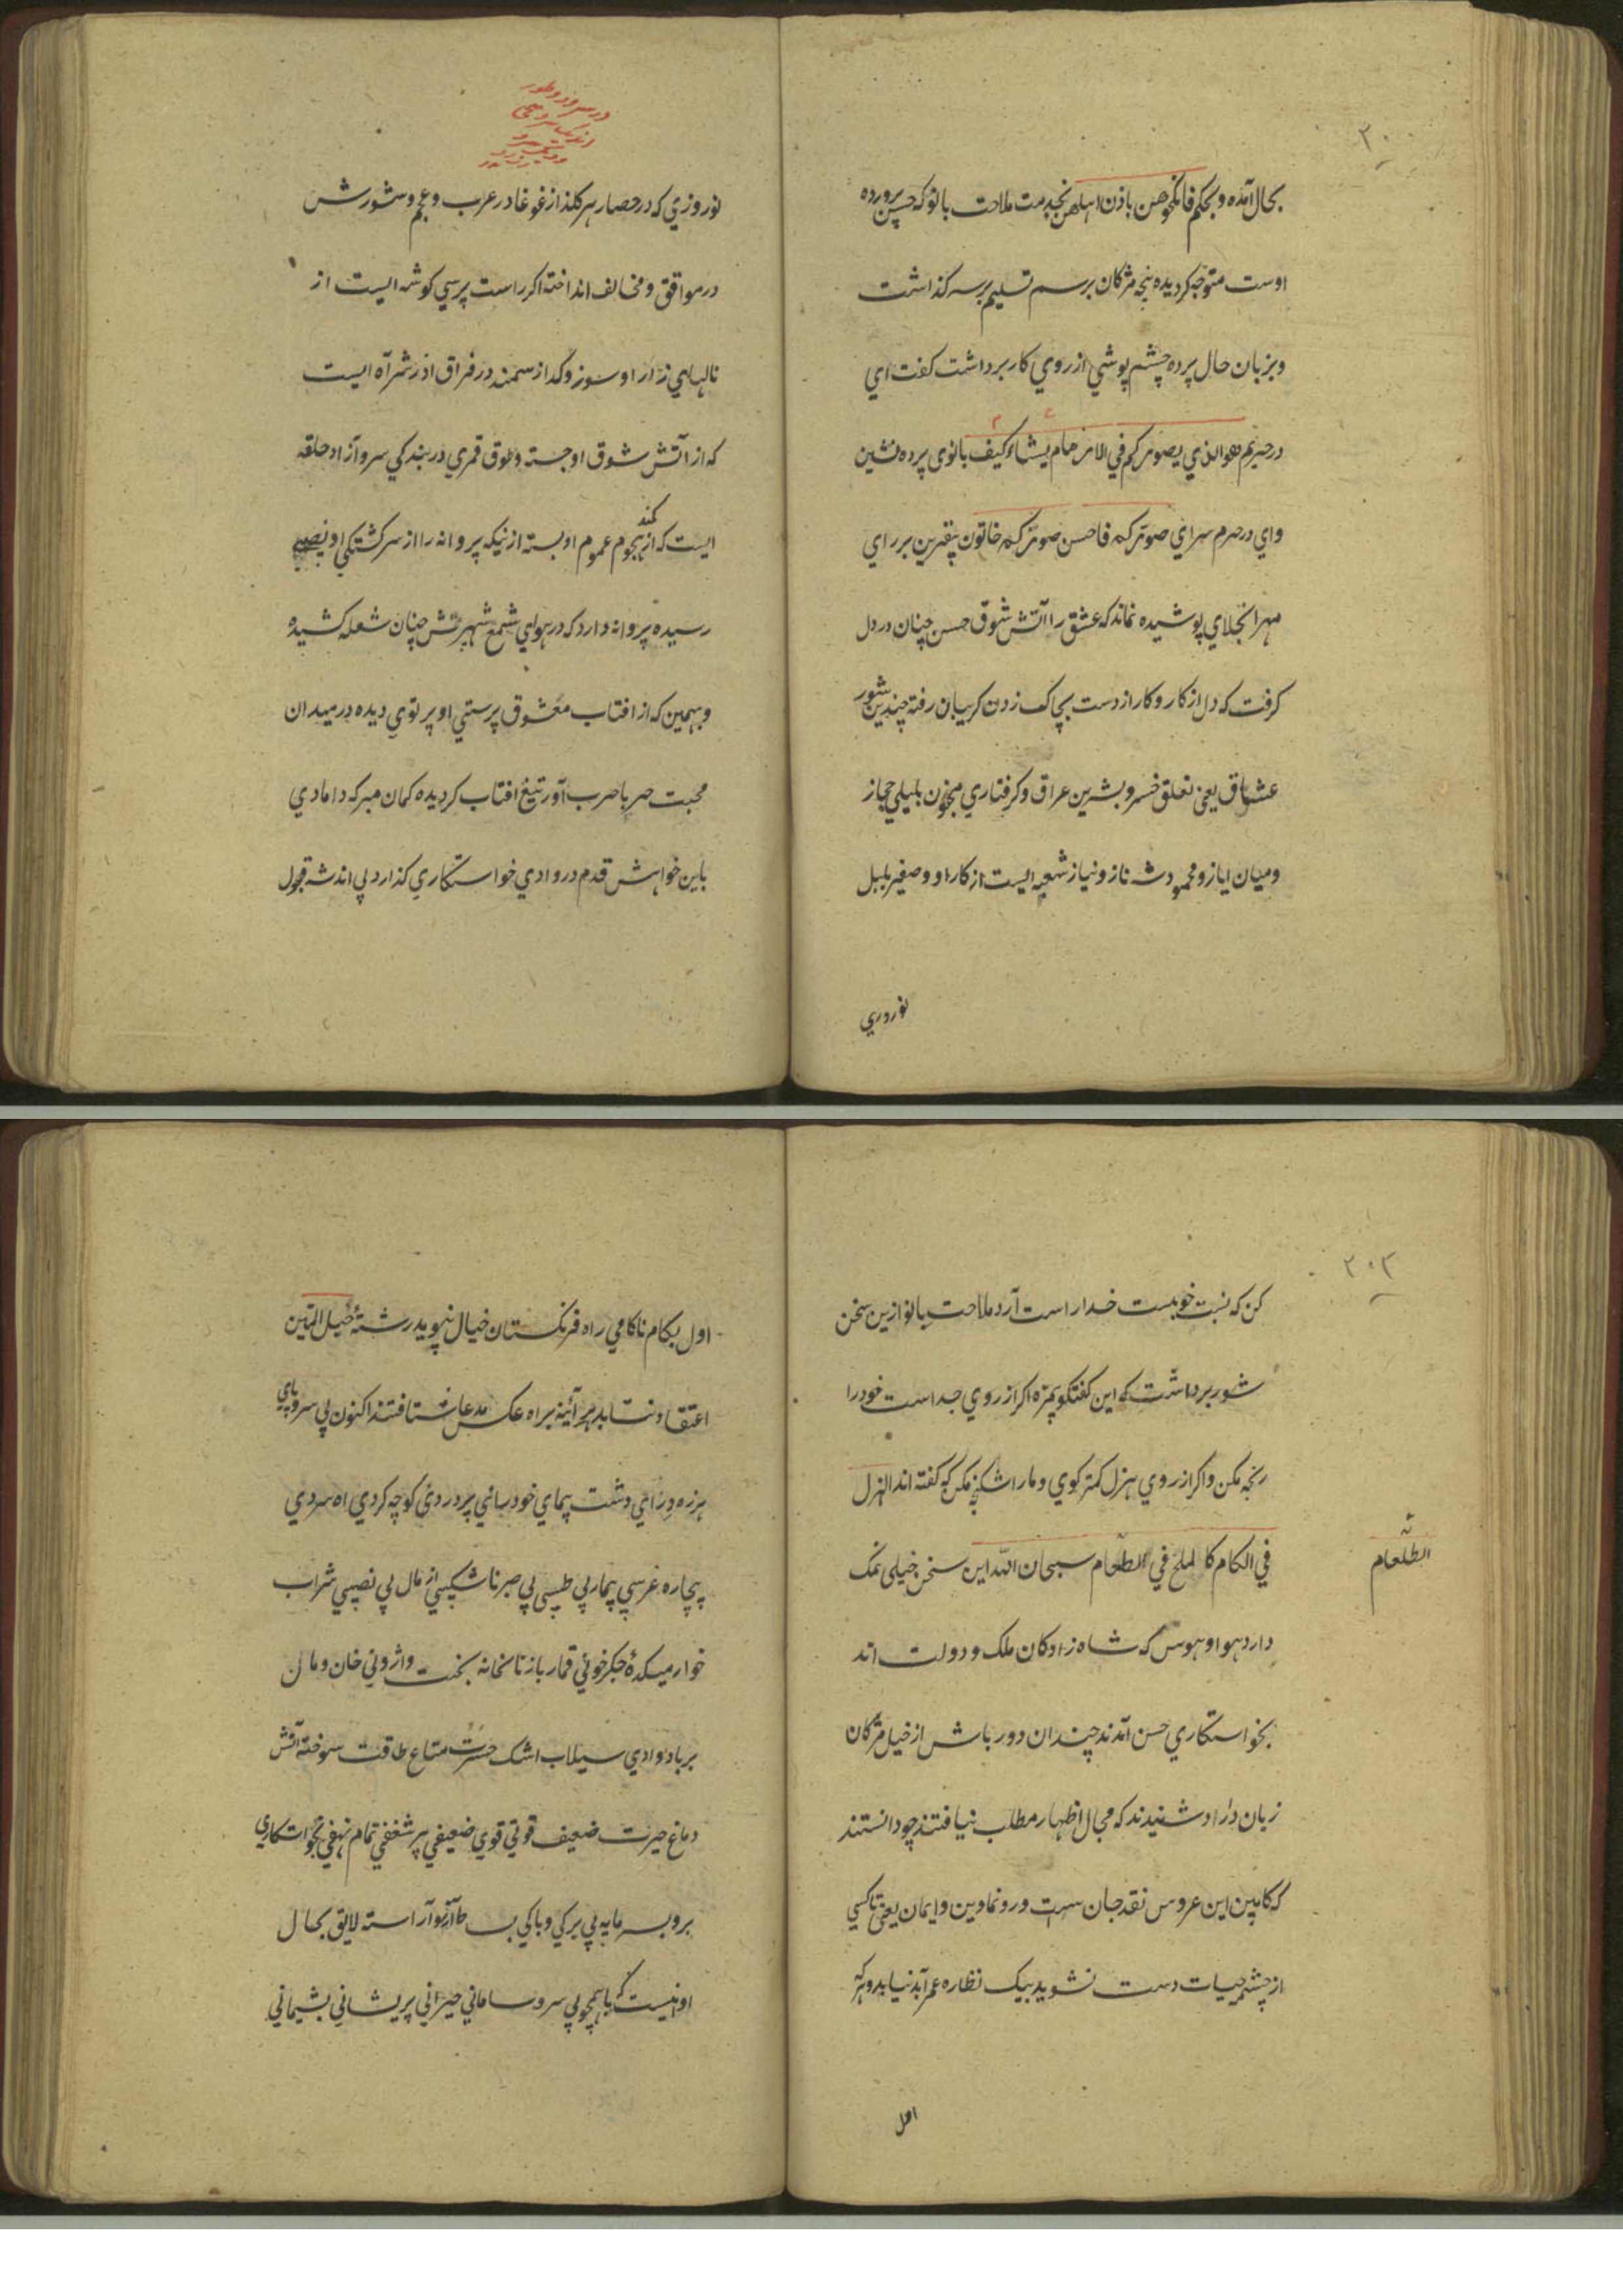 ۲۰
بحال آمده و بحکم فانکحوهن باذن اهلهن بخدمت ملاحت بانو که حسن پرورده
اوست متوجه کردیده پنجه مژکان برسم تسلیم بر سر کذاشت
و بزبان حال پرده چشم پوشی از روی کار برداشت کفت ای
در حریم هوالذی یصورکم فی الارحام کیف یشاء بانوی پرده نشین
وای در حرم سرای صورکم فاحسن صورکم خاتون بقرین بر رای
مهر انجلای پوشیده نماند که عشق را آتش شوق حسن چنان در دل
کرفت که دل از کار و کار از دست بچاک زدن کریبان رفته چندین شور
عشاق یعنی تعلق خسرو بشیرین عراق و کرفتاری مجنون بلیلی حجاز
و میان ایاز و محمود شه ناز و نیاز شعبه ایست از کار او و صفیر بلبل
نوروزی
نوروزی که در حصار هر کلذار غوغا در عرب و عجم و شورش
در موافق و مخالف انداخته اکر راست پرسی کوشه ایست از
نالهای زار او سوز و کداز سمند در فراق اذر شراره ایست
که از آتش شوق او جسته و طوق قمری در بندکی سرو آزاد حلقه
ایست که از کمند هجوم عموم او بسته از نیکه پروانه را از سرکشتکی او نصیبی
رسیده پروانه دارد که در هوای شمع شهپرتش چنان شعله کشیده
و بهمین که از افتاب معشوق پرستی او پرتوی دیده در میدان
محبت حربا حرب آور تیغ افتاب کردیده کمان مبر که دامادی
باین خواهش قدم در وادی خواستکاری کذارد بی اندشه قبول
۲۰۲
کن که نسبت خوبست خدا راست آرد ملاحت بانو ازین سخن
شور برداشت که این کفتکو بمزه اکر از روی جد است خود را
رنجه مکن و اکر از روی هزل کمتر کوی و ما را شکنجه مکن که کفته اند الهزل
فی الکام کا لملح فی الطعام سبحان الله این سخن خیلی نمک
الطعام
دارد هوا و هوس که شاه زادکان ملک و دولت اند
بخواستکاری حسن آمدند چندان دور باش از خیل مژکان
زبان دراد شنیدند که مجال اظهار مطلب نیافتند چو دانستند
که کابین این عروس نقد جان ست و رونما دین و ایمان یعنی تا کسی
از چشمه حیات دست نشوید بیک نظاره عمر ابد نیابد و هر که
اول
اول بکام ناکامی راه فرنکستان خیال نپوید رشته حبل المتین
اعتقاد نتابد هر آئینه براه عکس مدعا شتافتند اکنون بی سر و پای
هرزه درای دشت پیمای خود بانی پر دردی کوچه کردی اه سردی
بیچاره غریبی بیمار بی طبیبی بی صبر ناشکیبی از مال بی نصیبی شراب
خوار میکده جکر خوئی قمار باز ناسخانه بخت واژونی خان و مان
بر باد وادی سیلاب اشک حسرت متاع طاقت سوخته آتش
دماغ حیرت ضعیف قوتی قوی ضعیفی پر شغفی تمام نهفی بخواستکاری
بر و بسر مایه بی برکی و باکی بساط آرزو آراسته لایق بحال
او نیست که با همچو بی سر و سامانی حیرانی پریشانی پشیمانی